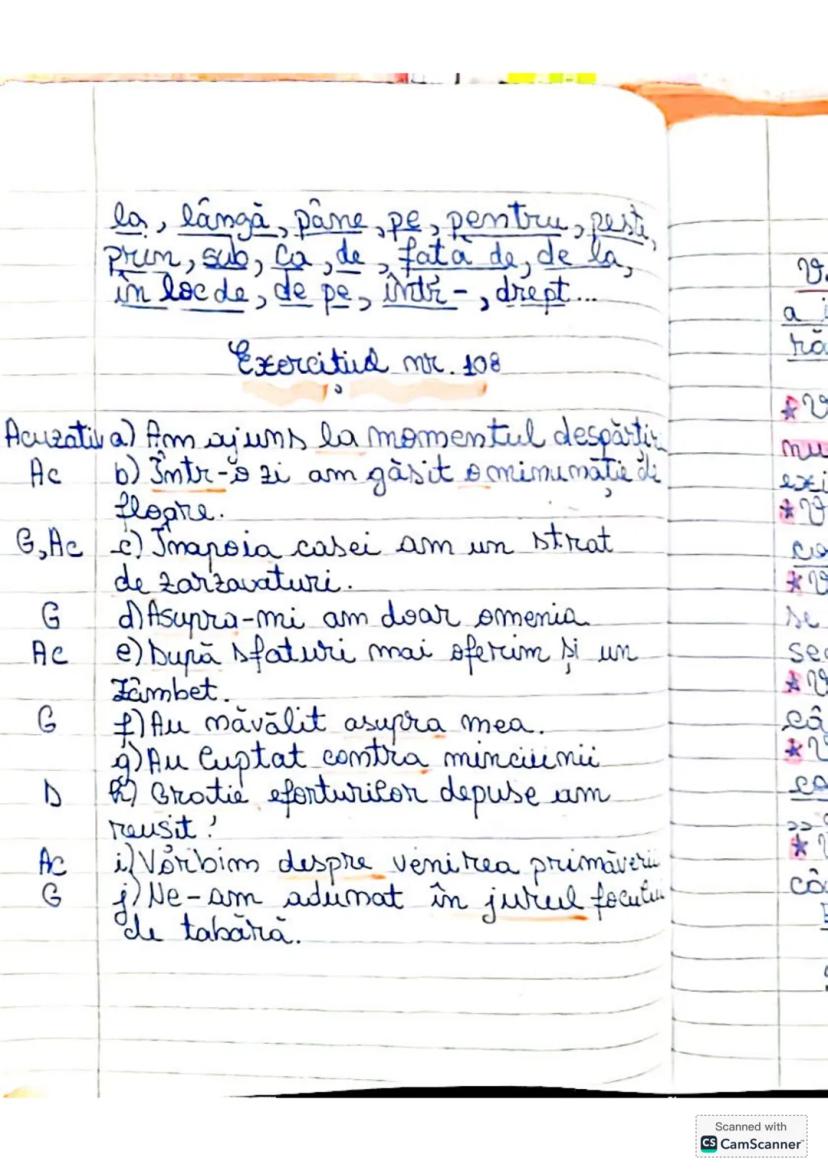 la, lângă, pâne, pe, pentru, peste,
prin, sub, ca, de, fată de, de la,
în loc de, de pe, într-, drept...
Exercițiul nr. 108
Acuzativ a) Am ajuns la momentul despărțir
Ac b) Într-o zi am găsit o minumăție de
floare.
G, Ac c) Înapoia casei am un strat
de zarzavaturi.
G d) Asupra-mi am doar omenia
Ac e) După sfaturi mai oferim și un
zâmbet.
G f) Au năvălit asupra mea.
g) Au luptat contra minciunii
D h) Grație eforturilor depuse am
reusit!
Ac i) Vorbim despre venirea primăverii
G j) Ne-am adunat în jurul focului
de tabără.
V
a i
ră
* V
nu
exi
* V
co
* V
se
sec
* V
câ
* V
co
* V
câ
Scanned with
CS CamScanner